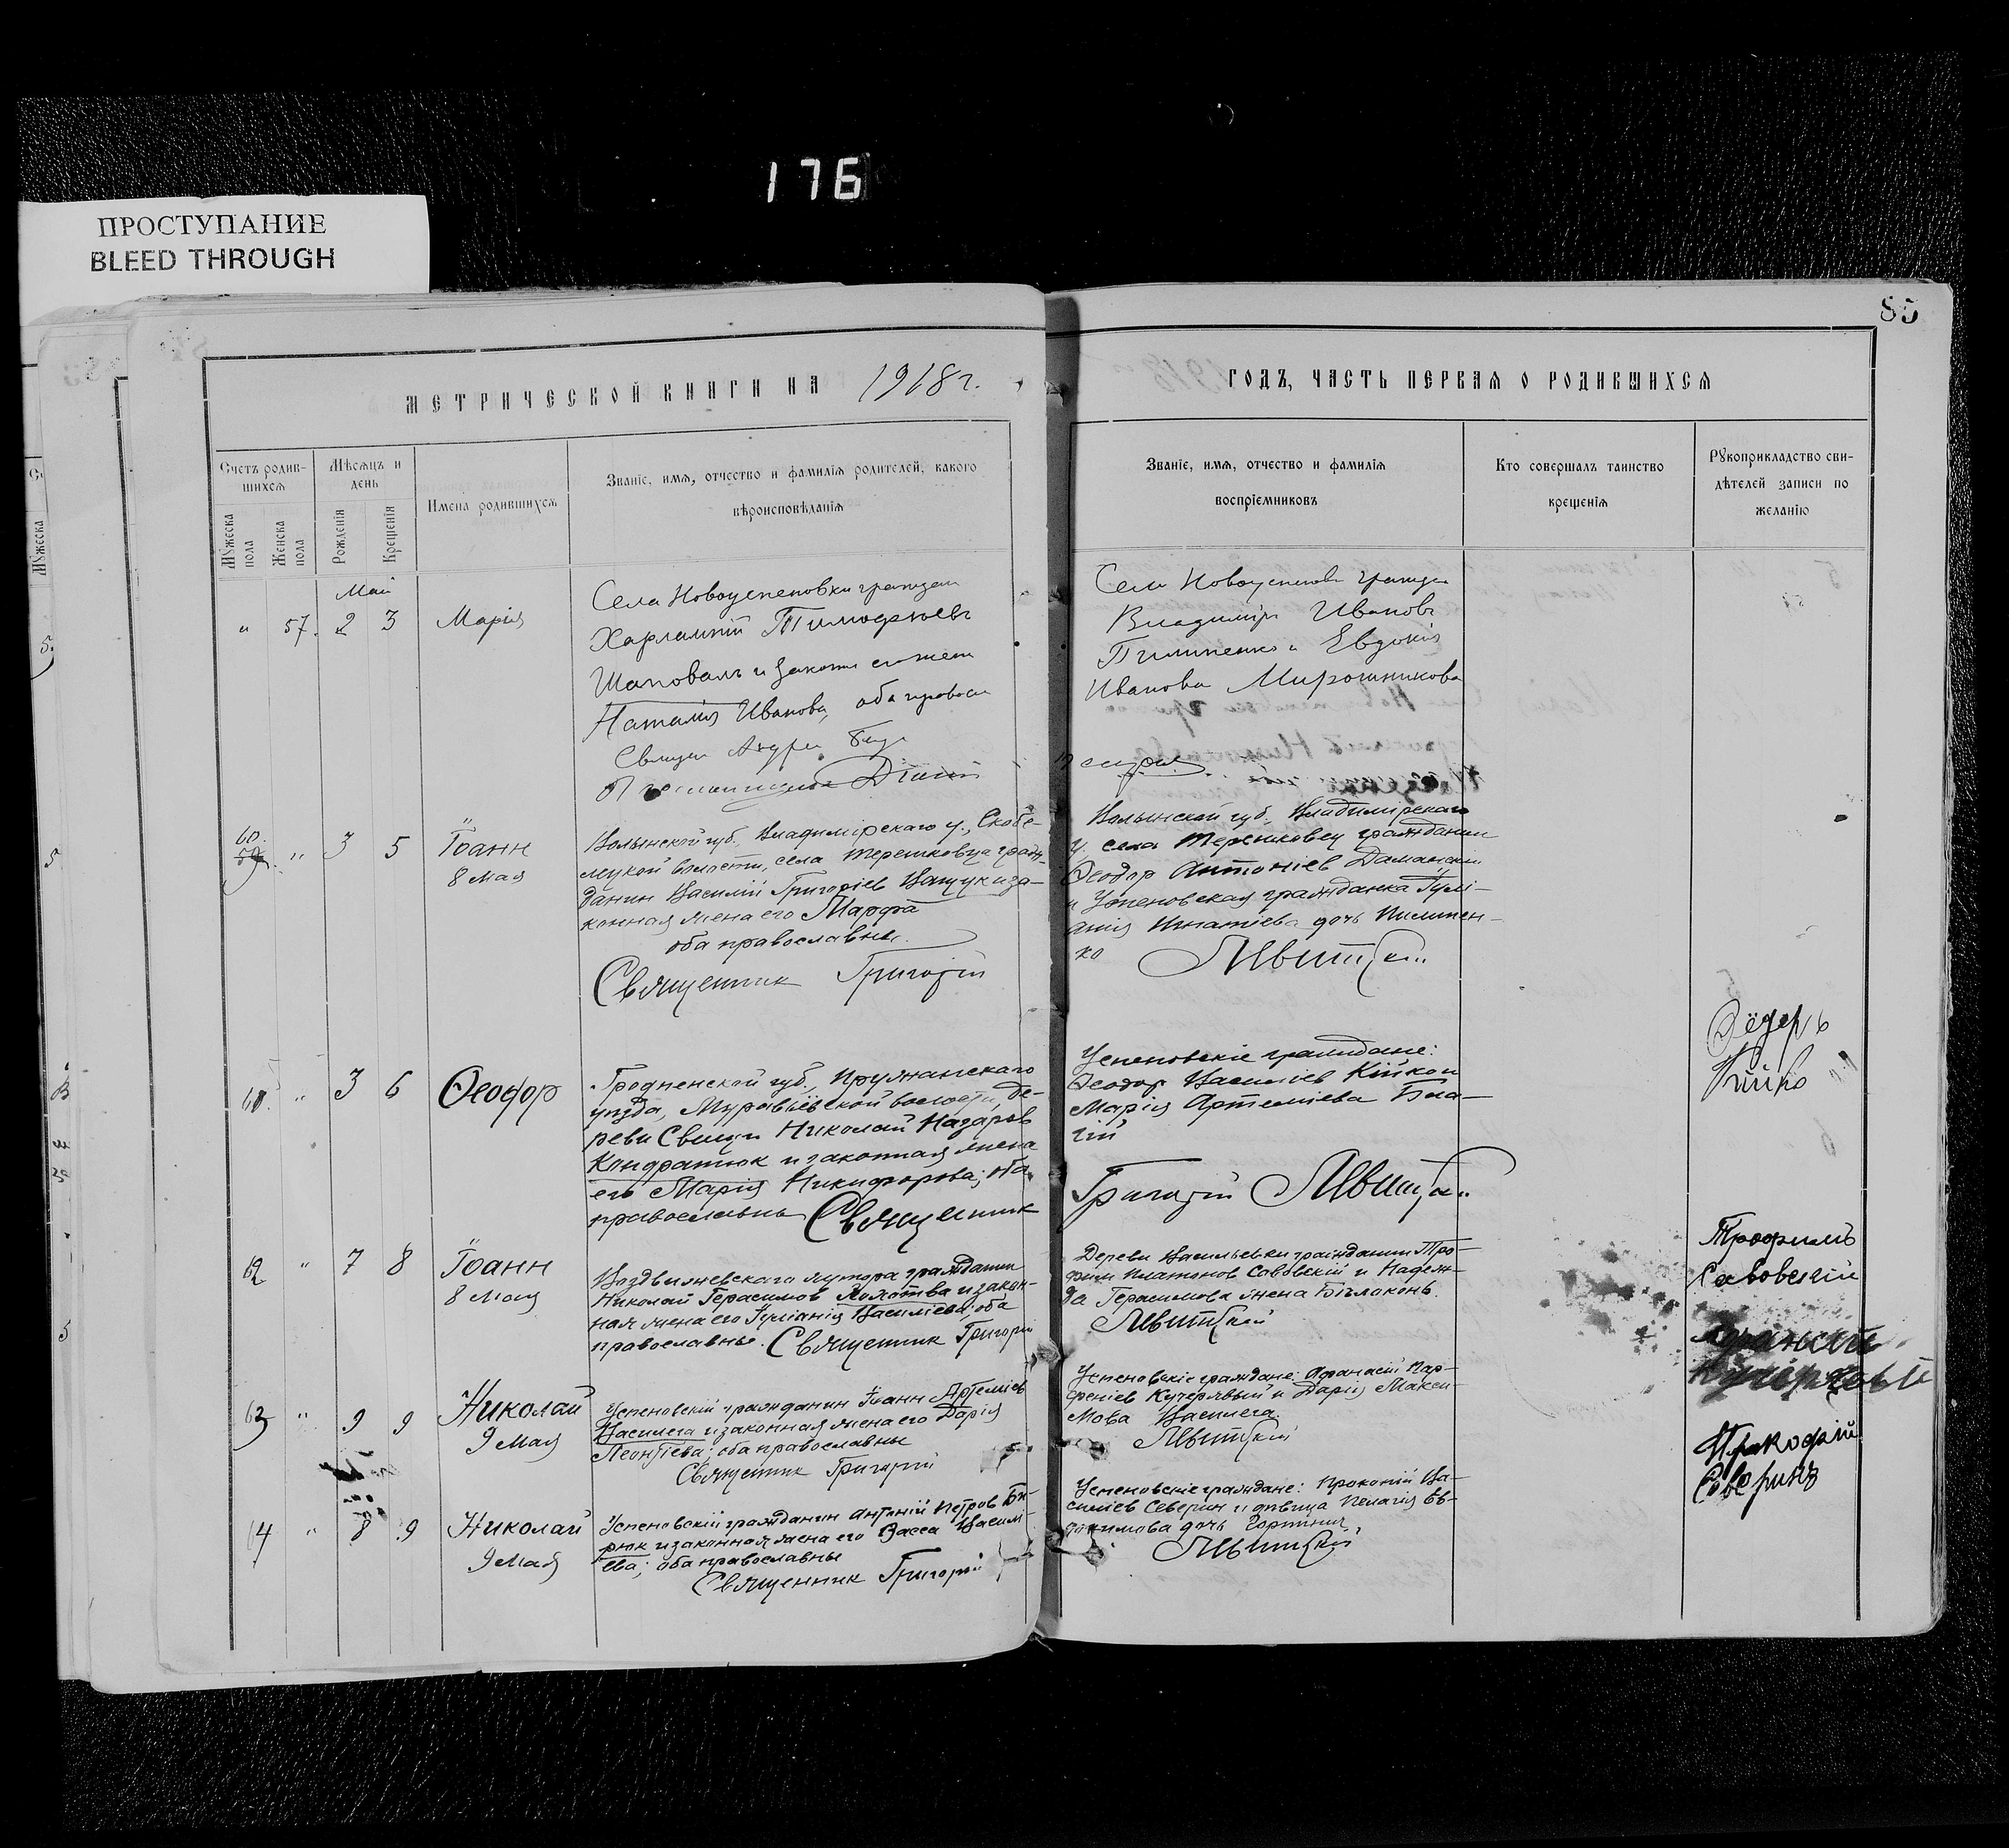 176
ПРОСТУПАНИЕ
BLEED THROUGH
85
МЕТРИЧЕСКОЙ КНИГИ НА 1918 г.
ГОДЪ, ЧАСТЬ ПЕРВАЯ О РОДИВШИХСЯ
Счетъ родив-
шихся
Мужеска
пола
Женска
пола
Мѣсяцъ и
день
Рожденія
Крещенія
Имена родившихся
Званіе, имя, отчество и фамилія родителей, какого
вѣроисповѣданія
Званіе, имя, отчество и фамилія
воспріемниковъ
Кто совершалъ таинство
крещенія
Рукоприкладство сви-
дѣтелей записи по
желанію
Май
" 57. 2 3 Марія
Села Новоуспеновки граждан
Харлампій Тимофѣевъ
Шаповалъ и
Наталія Иванова, оба правосл
Свящ Андрей
Села Новоуспенов граждан
Владиміръ Ивановъ
Пилипенко и Евдокія
Иванова Мирошникова
60 " 3 5 Іоанн
8 Мая
Волынской губ., Владимірскаго у., Скобе-
лецкой волости, села Терешковца граж-
данин Василій Григоріев и за-
конная жена его Марфа
оба православны.
Священник Григорій
Волынской губ., Владимірскаго
у. села Терешковец гражданин
Ѳеодор Антоніев Даманскій
и Успеновская гражданка Іулі-
анія Игнатіева дочь Пилипен-
ко
61. " 3 6 Ѳеодор
Гродненской губ., Пружанскаго
уѣзда, Муравьёвской волости, де-
ревни Николай Назаров
Кондратюк и законная жена
его Марія Никифорова; оба
православны Священник
Успеновскіе граждане:
Ѳеодор Василіев Кійко и
Марія Артеміева Бла-
гій
Григорій
Ѳёдеръ
Кійко
62 " 7 8 Іоанн
8 Мая
Воздвиженскаго хутора гражданин
Николай Герасимов и закон-
ная жена его Іуліанія Василіева; оба
православны. Священник Григорій
Деревни Васильевки гражданин Тро-
фим Платонов Савовскій и Надеж-
да Герасимова жена Бѣлоконь.
Трофимъ
Савовскій
63 " 9 9 Николай
9 Мая
Успеновскій гражданин Іоанн Артеміев
Василега и законная жена его Дарія
Леонтіева; оба православны
Священник Григорій
Успеновскіе граждане: Афанасій Пар-
феніев Кучерявый и Дарія Макси-
мова Василега.
64 " 8 9 Николай
9 Мая
Успеновскій гражданин Антоній Петров Би-
рюк и законная жена его Васса Васильі-
ева; оба православны
Священник Григорій
Успеновскіе граждане: Прокопій Ва-
силіев Северин и дѣвица Пелагія Ев-
Прокофій
Северинъ